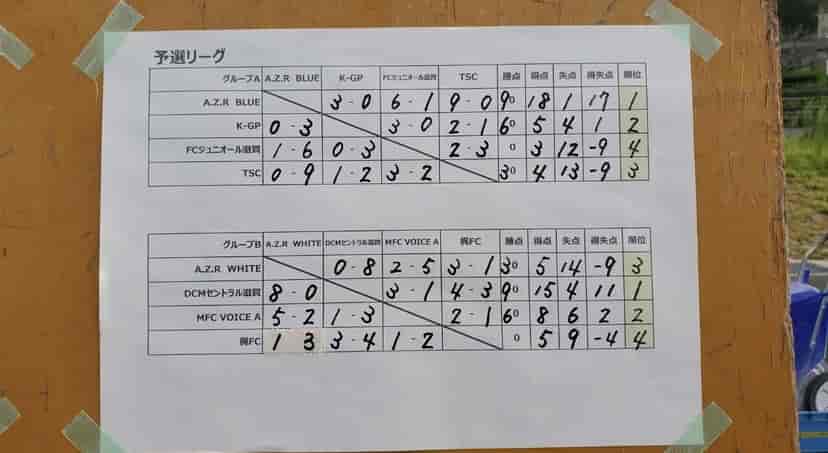 予選リーグ
グループA A.Z.R BLUE K-GP FCジュニオール滋賀 TSC 勝点 得点 失点 得失点 順位
A.Z.R BLUE 3 - 0 6 - 1 9 - 0 9 0 18 1 17 1
K-GP 0 - 3 3 - 0 2 - 1 6 0 5 4 1 2
FCジュニオール滋賀 1 - 6 0 - 3 2 - 3 0 3 12 -9 4
TSC 0 - 9 1 - 2 3 - 2 3 0 4 13 -9 3
グループB A.Z.R WHITE DCMセントラル滋賀 MFC VOICE A 梶FC 勝点 得点 失点 得失点 順位
A.Z.R WHITE 0 - 8 2 - 5 3 - 1 3 0 5 14 -9 3
DCMセントラル滋賀 8 - 0 3 - 1 4 - 3 9 0 15 4 11 1
MFC VOICE A 5 - 2 1 - 3 2 - 1 6 0 8 6 2 2
梶FC 1 3 3 - 4 1 - 2 0 5 9 -4 4